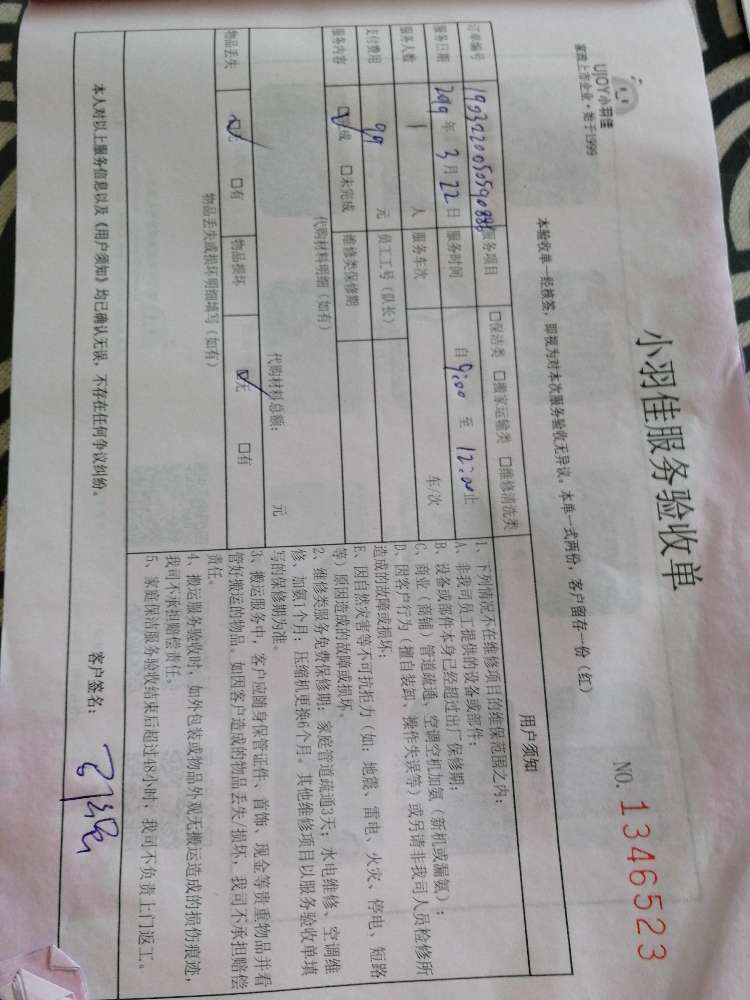 UJOY小羽佳
家政上市企业·始于1999
小羽佳服务验收单
NO. 1346523
本验收单一经核签，即视为对本次服务验收无异议。本单一式两份，客户留存一份（红）
订单编号
服务项目 □保洁类 □搬家运输类 □维修清洗类
服务日期 2019年3月22日 服务时间 自9:00至12:00止
服务人数 1人 服务车次 车/次
支付费用 99元 员工工号（队长）
服务内容 ☑完成 □未完成 维修类保修期
代购材料明细（如有）
代购材料总额： 元
物品丢失 ☑无 □有 物品损坏 ☑无 □有
物品丢失或损坏明细填写（如有）
用户须知
1、下列情况不在维修项目的维保范围之内：
A、非我司员工提供的设备或部件；
B、设备或部件本身已经超过出厂保修期；
C、商业（商铺）管道疏通、空调空机加氨（新机或漏氨）；
D、因客户行为（擅自装卸、操作失误等）或另请非我司人员检修所
造成的故障或损坏；
E、因自然灾害等不可抗拒力（如：地震、雷电、火灾、停电、短路
等）原因造成的故障或损坏。
2、维修类服务免费保修期：家庭管道疏通3天；水电维修、空调维
修、加氨1个月；压缩机更换6个月。其他维修项目以服务验收单填
写的保修期为准。
3、搬运服务中，客户应随身保管证件、首饰、现金等贵重物品并看
管好搬运的物品。如因客户造成的物品丢失/损坏，我司不承担赔偿
责任。
4、搬运服务验收时，如外包装或物品外观无搬运造成的损伤痕迹，
我司不承担赔偿责任。
5、家庭保洁服务验收结束后超过48小时，我司不负责上门返工。
本人对以上服务信息以及《用户须知》均已确认无误，不存在任何争议纠纷。
客户签名：